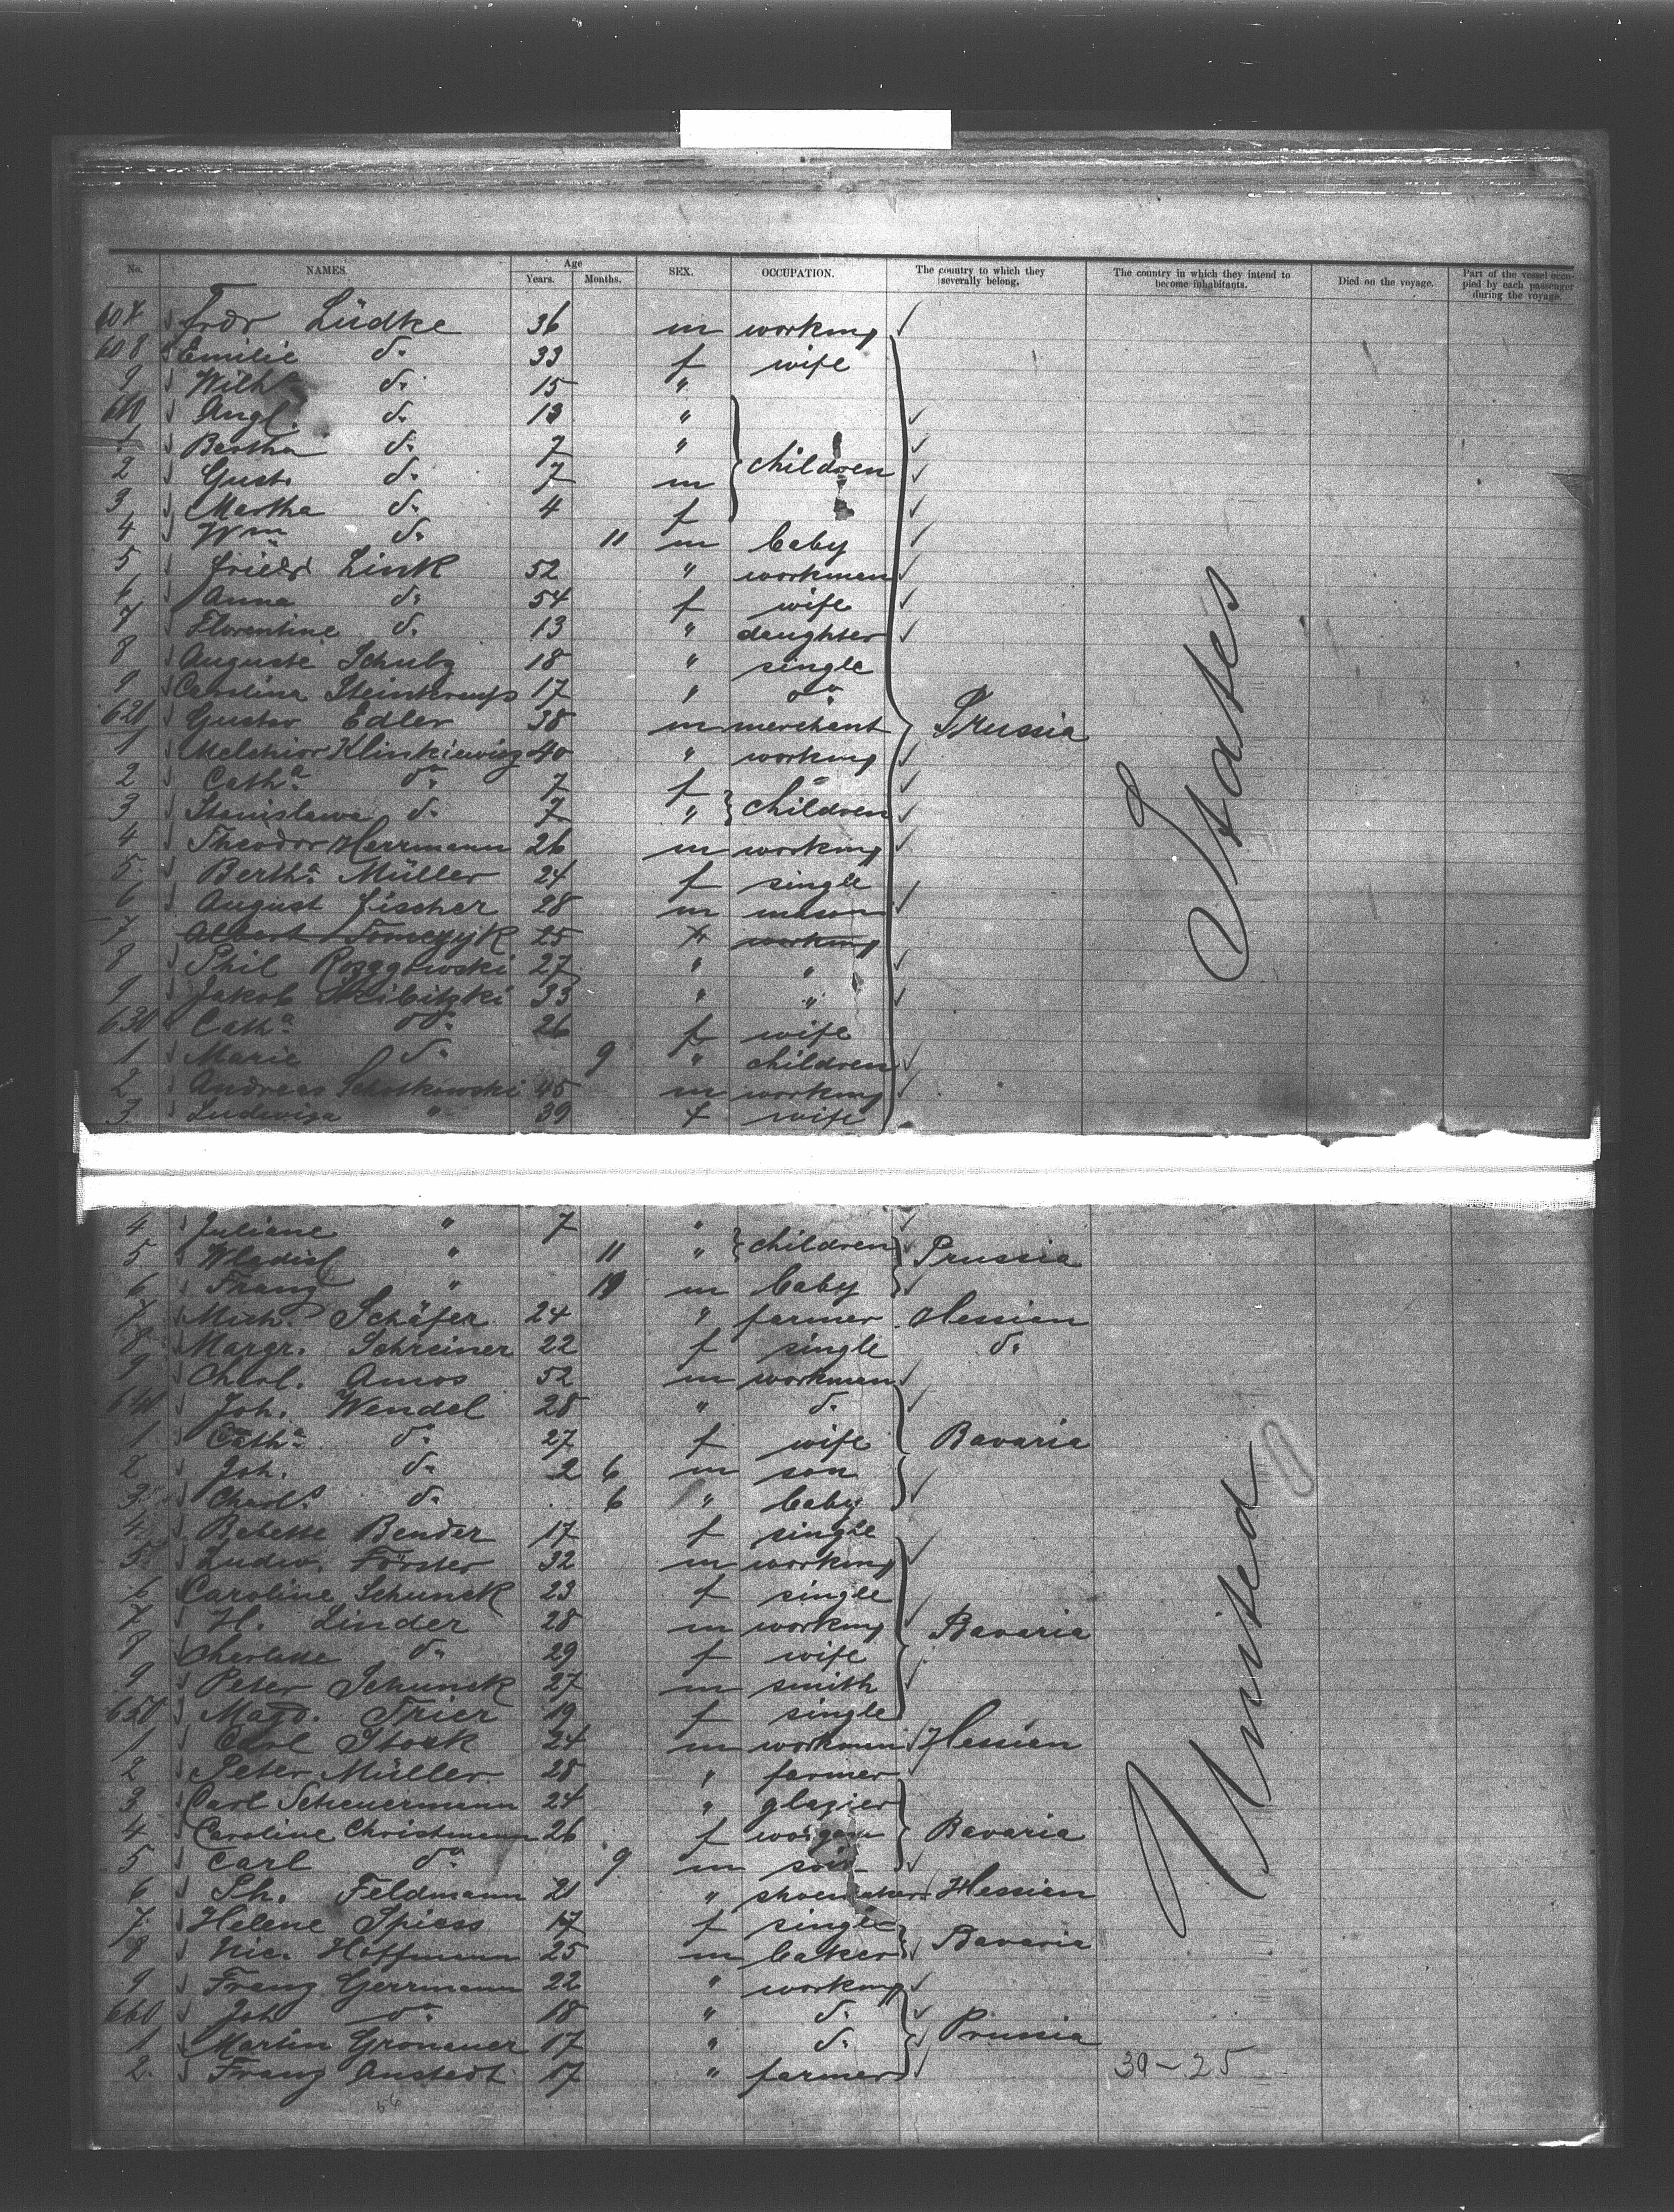 No. NAMES. Age Years. Months. SEX. OCCUPATION. The country to which they severally belong. The country in which they intend to become inhabitants. Died on the voyage. Part of the vessel occupied by each passenger during the voyage.
607 Lüdke 36 m working
608 Emilie do 33 f wife
9 Wilhe do 15 "
610 Augl. do 13 "
1 Bertha do 7 "
2 Gust. do 7 m children
3 Martha do 4 f
4 Wm do 11 m baby
5 Friedr Link 52 " workman
6 Anna do 54 f wife
7 Florentine do 13 " daughter
8 Auguste Schulz 18 " single
9 Carolina 17 " do
620 Gustav Edler 38 m merchant Prussia
1 Melchior Klinkiewicz 40 " working
2 Catha do 7 f
3 Stanislawa do 7 " children
4 Theodor Herrmann 26 m working
5 Bertha Müller 24 f single
6 August Fischer 28 m mason
7 Albert Tomczyk 25 " working
8 Phil 27 " "
9 Jakob 33 " "
630 Catha do 26 f wife
1 Marie do 9 " children
2 Andreas 45 m working
3 Ludwiga " 39 f wife
States
4 Juliane " 7 "
5 Wladisl " 11 " children Prussia
6 Franz " m baby
7 Mich. Schäfer 24 " farmer Hessien
8 Margr. Schreiner 22 f single do
9 Charl. Amos 52 m workman
640 Joh. Wendel 28 " do
1 Catha do 27 f wife Bavaria
2 Joh. do 2 6 m son
3 Charls do 6 " baby
4 Babette Bender 17 f single
5 Ludw. Förster 32 m working
6 Caroline Schunck 23 f single
7 H. Linder 28 m working Bavaria
8 Charlotte do 29 f wife
9 Peter Schunck 27 m smith
650 Magd. Trier 19 f single
1 Carl Stock 24 m workman Hessien
2 Peter Müller 28 " farmer
3 Carl Scheuermann 24 " glazier
4 Caroline Christmann 26 f Bavaria
5 Carl do 9 m son
6 Ph. Feldmann 21 " shoemaker Hessien
7 Helene Spiess 17 f single
8 Nic. Hoffmann 25 m baker Bavaria
9 Franz Gerrmann 22 " working
660 Joh do 18 " do
1 Martin Gronauer 17 " do Prussia
2. Franz Anstedt 17 " farmer
United
30-25